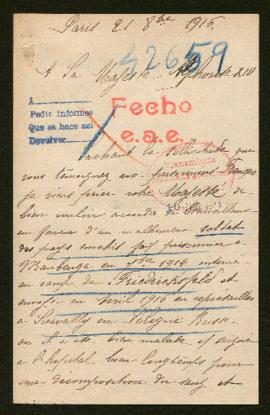 Paris 21 8bre 1916.
42659
A Sa Majesté Alphonse XIII
A
Pedir informes
Que se hace así
Devolver
Fecho
e.a.e.
Sachant la sollicitude que
vous témoignez aux prisonniers Français
je viens prier votre Majesté de
bien vouloir
en faveur d'un malheureux soldat
des pays envahis fait prisonnier à
Maubeuge en 7bre 1914 interné
au camp de Friedrichsfeld et
envoyé en avril 1916 en représailles
à en Pologne Russe.
on l'a été bien malade et soigné
à l'hôpital bien longtemps pour
une décomposition du sang et